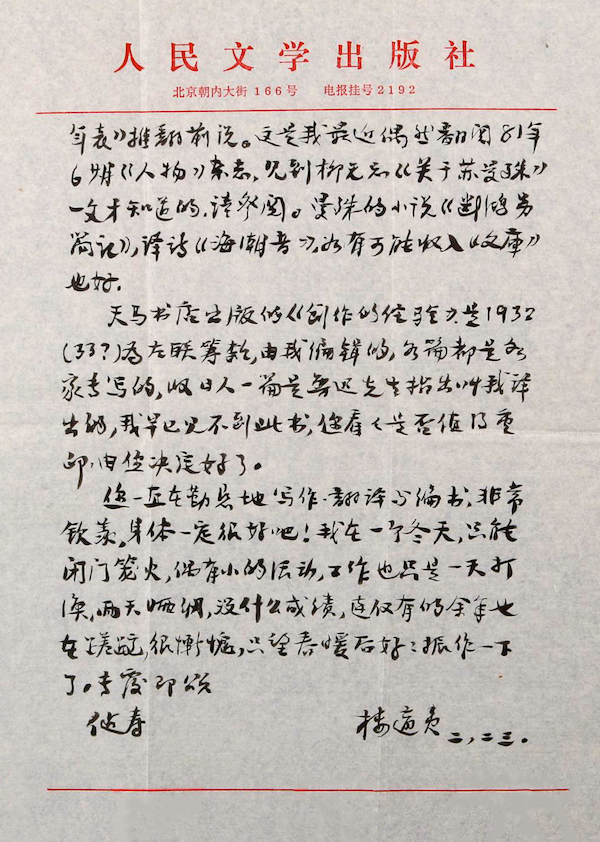 人民文学出版社
北京朝内大街166号 电报挂号2192
年表》推翻前说。这是我最近偶然翻阅81年
6期《人物》杂志,见到柳无忌《关于苏曼殊》
一文才知道的,请参阅。曼殊的小说《断鸿零
雁记》,译诗《海潮音》,如有可能收入《文庫》
也好.
天马书店出版的《创作的经验》是1932
(33?)为左联筹款,由我编辑的,各篇都是各
家专写的,收日人一篇是鲁迅先生指出叫我译
出的,我早已见不到此书,您看看是否值得重
印,由您决定好了。
您一直在勤恳地写作、翻译与编书,非常
钦羡,身体一定很好吧!我在一个冬天,只能
闭门笼火,偶有小的活动,工作也只是一天打
渔,两天晒网,没什么成绩,连仅有的余年也
在蹉跎,很惭愧,只望春暖后好好振作一下
了。专覆即颂
健寿
楼适夷 二,二三.